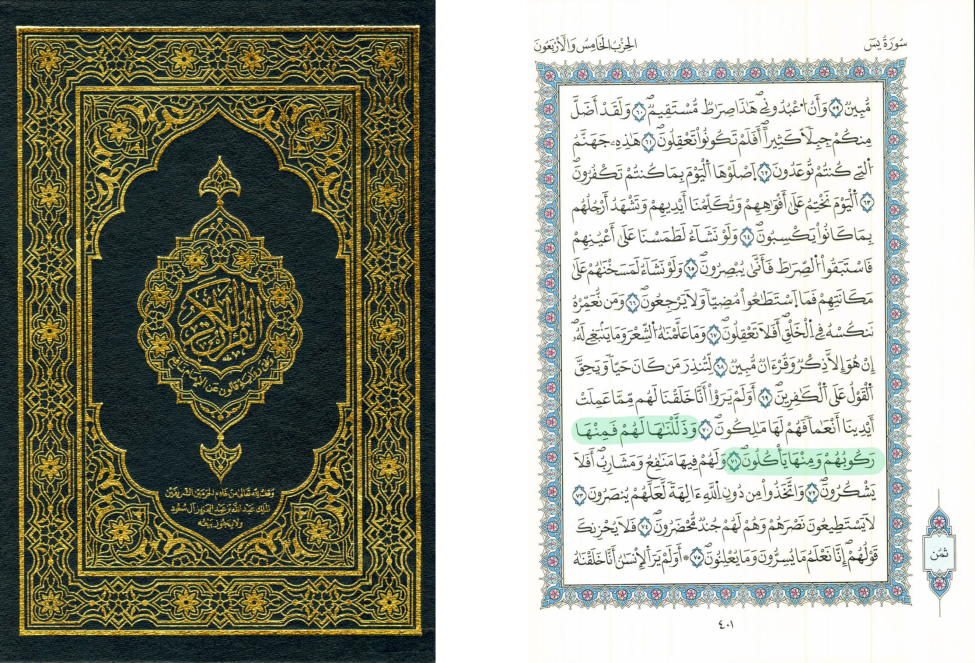 القرآن الكريم
وفق رواية قالون عن الإمام نافع
وقف لله تعالى من خادم الحرمين الشريفين
الملك عبد الله بن عبد العزيز آل سعود
ولا يجوز بيعه
سُورَةُ يسٓ
الحِزْبُ الخَامِسُ وَالْأَرْبَعُونَ
مُّبِينٌ ٥٩ وَأَنُ اُعْبُدُونِے هَٰذَا صِرَٰطٌ مُّسْتَقِيمٌ ٦٠ وَلَقَدْ أَضَلَّ
مِنكُمْ جِبِلّاً كَثِيراً أَفَلَمْ تَكُونُواْ تَعْقِلُونَ ٦١ هَٰذِهِۦ جَهَنَّمُ
اُلتِے كُنتُمْ تُوعَدُونَ ٦٢ اَصْلَوْهَا اَلْيَوْمَ بِمَا كُنتُمْ تَكْفُرُونَ
٦٣ اَلْيَوْمَ نَخْتِمُ عَلَىٰ أَفْوَٰهِهِمْ وَتُكَلِّمُنَا أَيْدِيهِمْ وَتَشْهَدُ أَرْجُلُهُم
بِمَا كَانُواْ يَكْسِبُونَ ٦٤ وَلَوْ نَشَآءُ لَطَمَسْنَا عَلَىٰ أَعْيُنِهِمْ
فَاسْتَبَقُواْ اُلصِّرَٰطَ فَأَنَّىٰ يُبْصِرُونَ ٦٥ وَلَوْ نَشَآءُ لَمَسَخْنَٰهُمْ عَلَىٰ
مَكَانَتِهِمْ فَمَا اَسْتَطَٰعُواْ مُضِيّاً وَلَا يَرْجِعُونَ ٦٦ وَمَن نُّعَمِّرْهُ
نَنكُسْهُ فِے اِلْخَلْقِ أَفَلَا تَعْقِلُونَ ٦٧ وَمَا عَلَّمْنَٰهُ اُلشِّعْرَ وَمَا يَنۢبَغِے لَهُۥ
إِنْ هُوَ إِلَّا ذِكْرٌ وَقُرْءَانٌ مُّبِينٌ ٦٨ لِّتُنذِرَ مَن كَانَ حَيّاً وَيَحِقَّ
اَلْقَوْلُ عَلَى اَلْكَٰفِرِينَ ٦٩ أَوَلَمْ يَرَوْاْ أَنَّا خَلَقْنَا لَهُم مِّمَّا عَمِلَتْ
أَيْدِينَا أَنْعَٰماً فَهُمْ لَهَا مَٰلِكُونَ ٧٠ وَذَلَّلْنَٰهَا لَهُمْ فَمِنْهَا
رَكُوبُهُمْ وَمِنْهَا يَأْكُلُونَ ٧١ وَلَهُمْ فِيهَا مَنَٰفِعُ وَمَشَارِبُ أَفَلَا
يَشْكُرُونَ ٧٢ وَاتَّخَذُواْ مِن دُونِ اِللَّهِ ءَالِهَةً لَّعَلَّهُمْ يُنصَرُونَ ٧٣
لَا يَسْتَطِيعُونَ نَصْرَهُمْ وَهُمْ لَهُمْ جُندٌ مُّحْضَرُونَ ٧٤ فَلَا يُحْزِنكَ
قَوْلُهُمْ إِنَّا نَعْلَمُ مَا يُسِرُّونَ وَمَا يُعْلِنُونَ ٧٥ ۞ أَوَلَمْ يَرَ اَلْإِنسَٰنُ أَنَّا خَلَقْنَٰهُ
ثُمُن
٤٠١